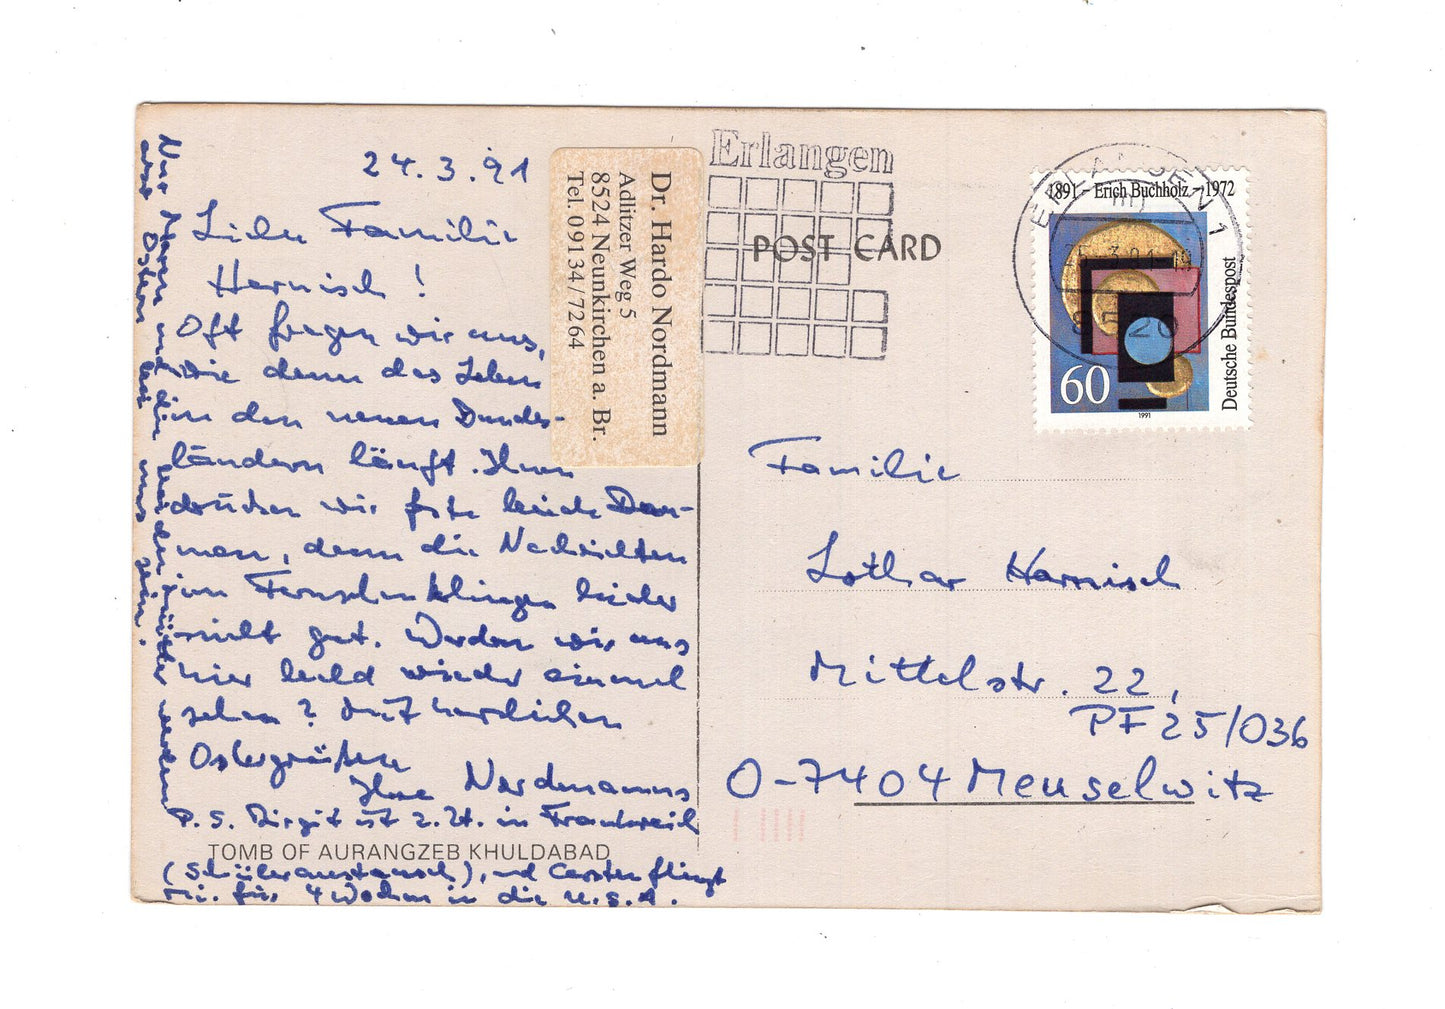 24.3.91
Liebe Familie
Harnisch!
Oft fragen wir uns,
wie denn das Leben
in den neuen Bundes-
ländern läuft. Ihnen
drücken wir feste beide Dau-
men, denn die Nachrichten
im Fernsehen klingen leider
nicht gut. Werden wir uns
hier bald wieder einmal
sehen? Mit herzlichen
Ostergrüßen
Ihre Nordmanns
P.S. Birgit ist z.Zt. in Frankreich
(Schüleraustausch), und Carsten fliegt
Mi. für 4 Wochen in die U.S.A.
Nur Maren und die beiden
erst Ostern bei uns sein.
TOMB OF AURANGZEB KHULDABAD
Dr. Hardo Nordmann
Adlitzer Weg 5
8524 Neunkirchen a. Br.
Tel. 09134/7264
Erlangen
POST CARD
ERLANGEN 1
8520
1891 – Erich Buchholz – 1972
Deutsche Bundespost
60
1991
Familie
Lothar Harnisch
Mittelstr. 22,
PF 25/036
O-7404 Meuselwitz